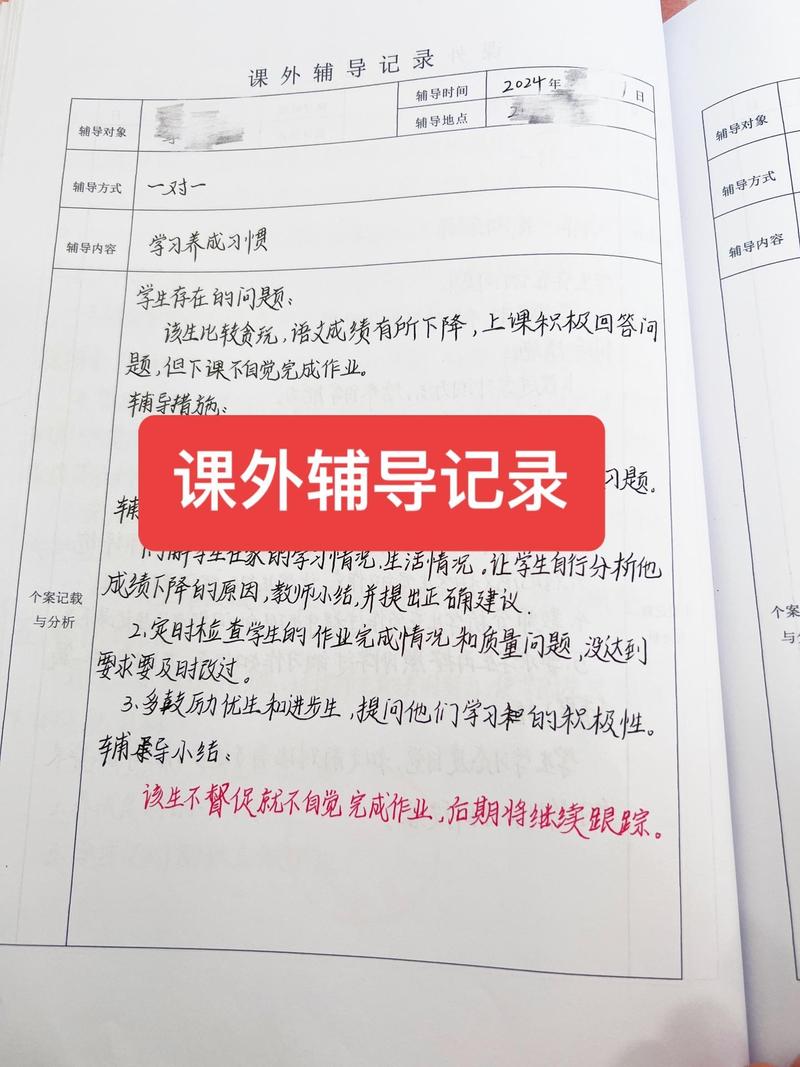 课外辅导记录
辅导对象
辅导时间 2024年 日
辅导地点
辅导方式 一对一
辅导内容 学习养成习惯
学生存在的问题：
该生比较贪玩，语文成绩有所下降，上课积极回答问
题，但下课不自觉完成作业。
辅导措施：
课外辅导记录
习题。
辅
学生在家的学习情况、生活情况。让学生自行分析他
成绩下降的原因，教师小结，并提出正确建议．
2.定时检查学生的作业完成情况和质量问题，没达到
要求要及时改过。
3.多鼓励优生和进步生，提问他们学习的积极性。
辅导小结：
该生不督促就不自觉完成作业，后期将继续跟踪。
个案记载
与分析
辅导对象
辅导方式
辅导内容
个案记
与分析